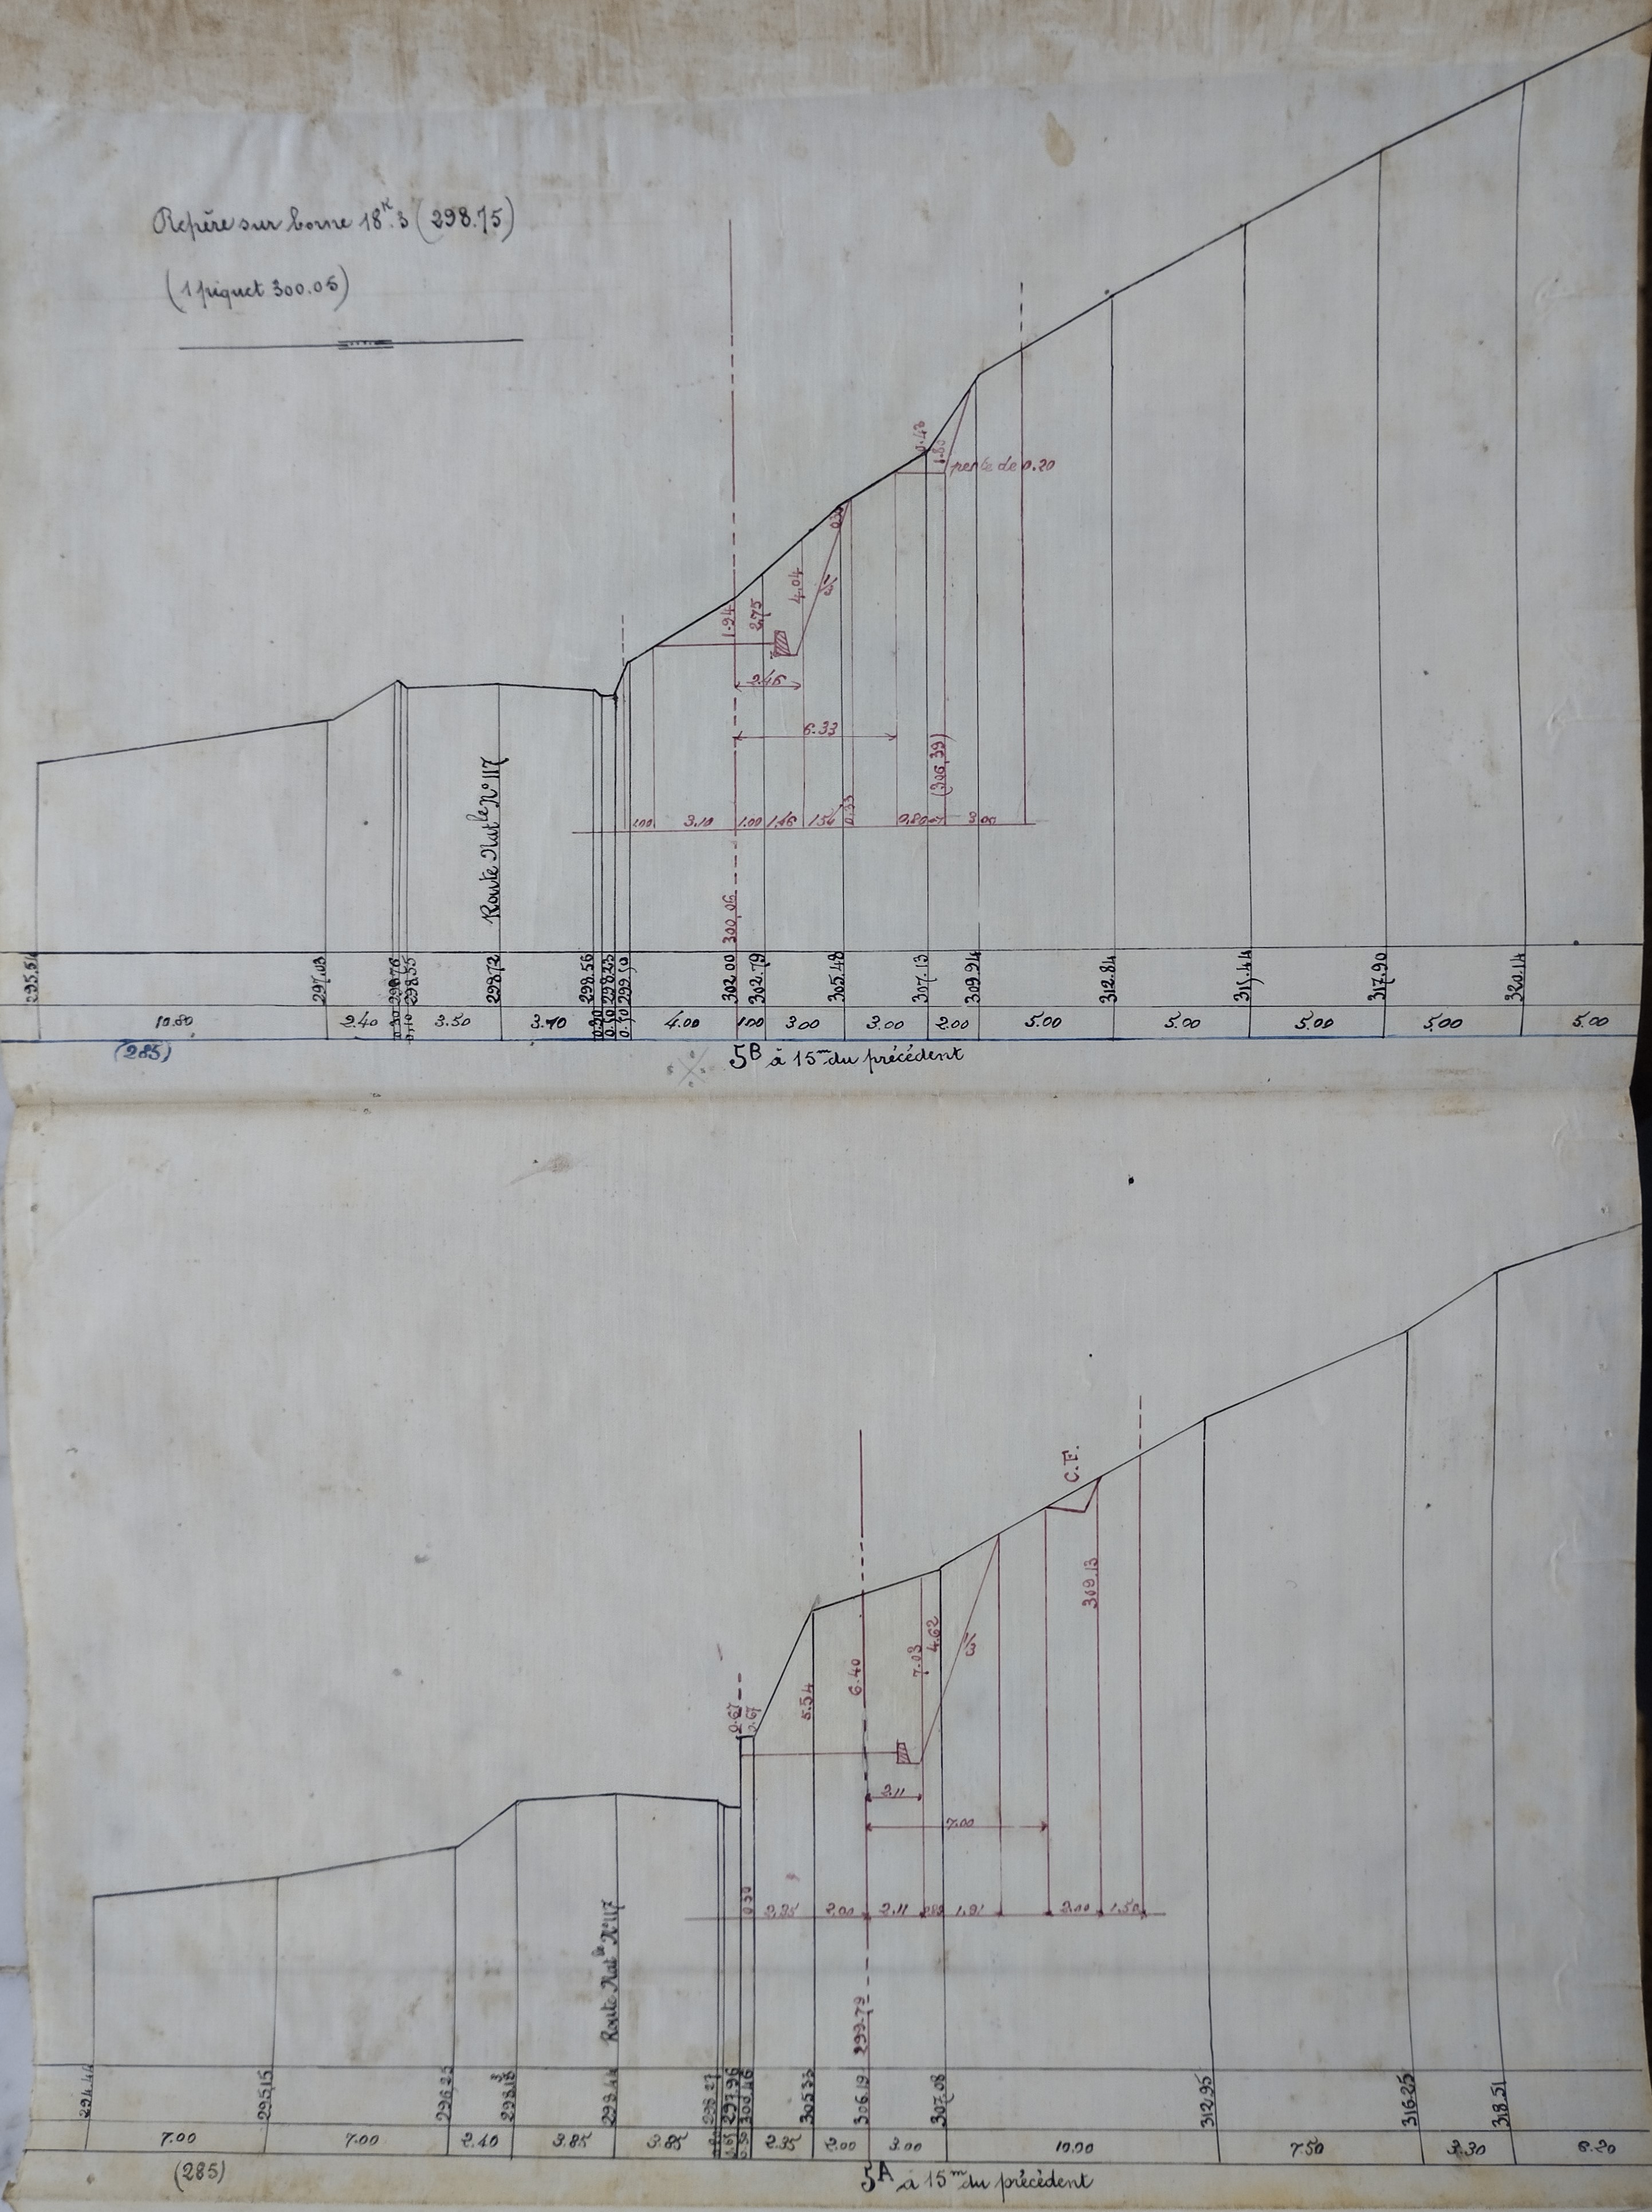 Repère sur borne 18ᴷ.3 (298.75)
(1 piquet 300.05)
0.43
1.80
pente de 0.20
0.33
4.04
1/3
1.94
2.75
2.46
6.33
(306.39)
Route Natˡᵉ Nº 117
1.00 3.10 1.00 1.46 1.54 0.33 0.80 3.00
300.06
297.03 298.55 298.72 298.56 299.50 302.00 302.79 305.48 307.13 309.94 312.84 315.44 317.90 320.14
10.80 2.40 0.30 0.10 3.50 3.70 4.00 1.00 3.00 3.00 2.00 5.00 5.00 5.00 5.00 5.00
(285)
5ᴮ à 15ᵐ du précédent
C.F.
309.13
1/3
4.62
7.03
6.40
5.54
0.67
0.67
2.11
7.00
0.50 2.35 2.00 2.11 1.91 2.00 1.50
Route Natˡᵉ Nº 117
299.79
294.44 295.15 296.23 298.18 298.44 298.27 297.96 300.46 305.33 306.19 307.08 312.95 316.25 318.51
7.00 7.00 2.40 3.85 3.85 2.35 2.00 3.00 10.00 7.50 3.30 6.20
(285)
5ᴬ à 15ᵐ du précédent